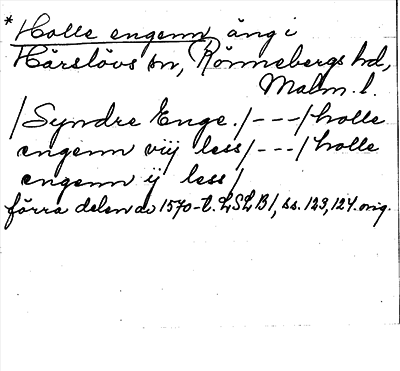 * Holle engenn äng i
Härslövs sn, Rönnebergs hd,
Malm. l.
/Syndre Enge./---/holle
engenn viij less/---/holle
engenn ij less/
förra delen av 1570-t. LSLB1, ss. 123, 124. orig.